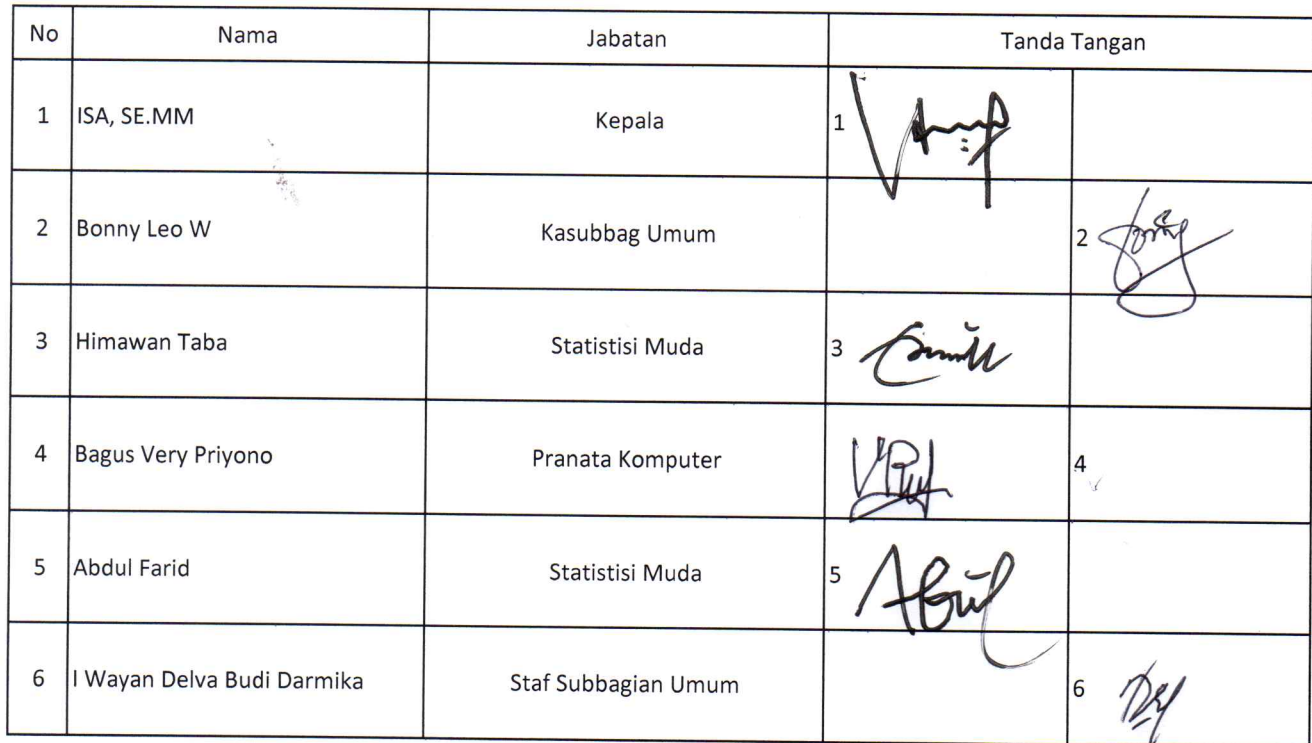 No Nama Jabatan Tanda Tangan
1 ISA, SE.MM Kepala 1
2 Bonny Leo W Kasubbag Umum 2
3 Himawan Taba Statistisi Muda 3
4 Bagus Very Priyono Pranata Komputer 4
5 Abdul Farid Statistisi Muda 5
6 I Wayan Delva Budi Darmika Staf Subbagian Umum 6